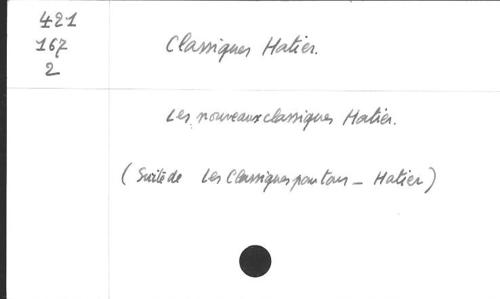 421
167
2
Classiques Hatier.
Les nouveaux classiques Hatier.
(Suite de Les Classiques pour tous - Hatier)